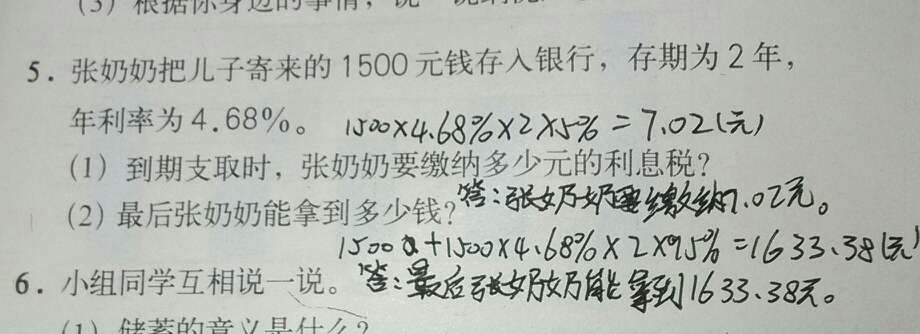 (3) 根据你身边的事情，说一说纳税
5. 张奶奶把儿子寄来的1500元钱存入银行，存期为2年，
年利率为4.68%。 1500×4.68%×2×5%=7.02(元)
(1) 到期支取时，张奶奶要缴纳多少元的利息税？
答：张奶奶要缴纳7.02元。
(2) 最后张奶奶能拿到多少钱？
1500+1500×4.68%×2×95%=1633.38(元)
6. 小组同学互相说一说。
答：最后张奶奶能拿到1633.38元。
(1) 储蓄的意义是什么？